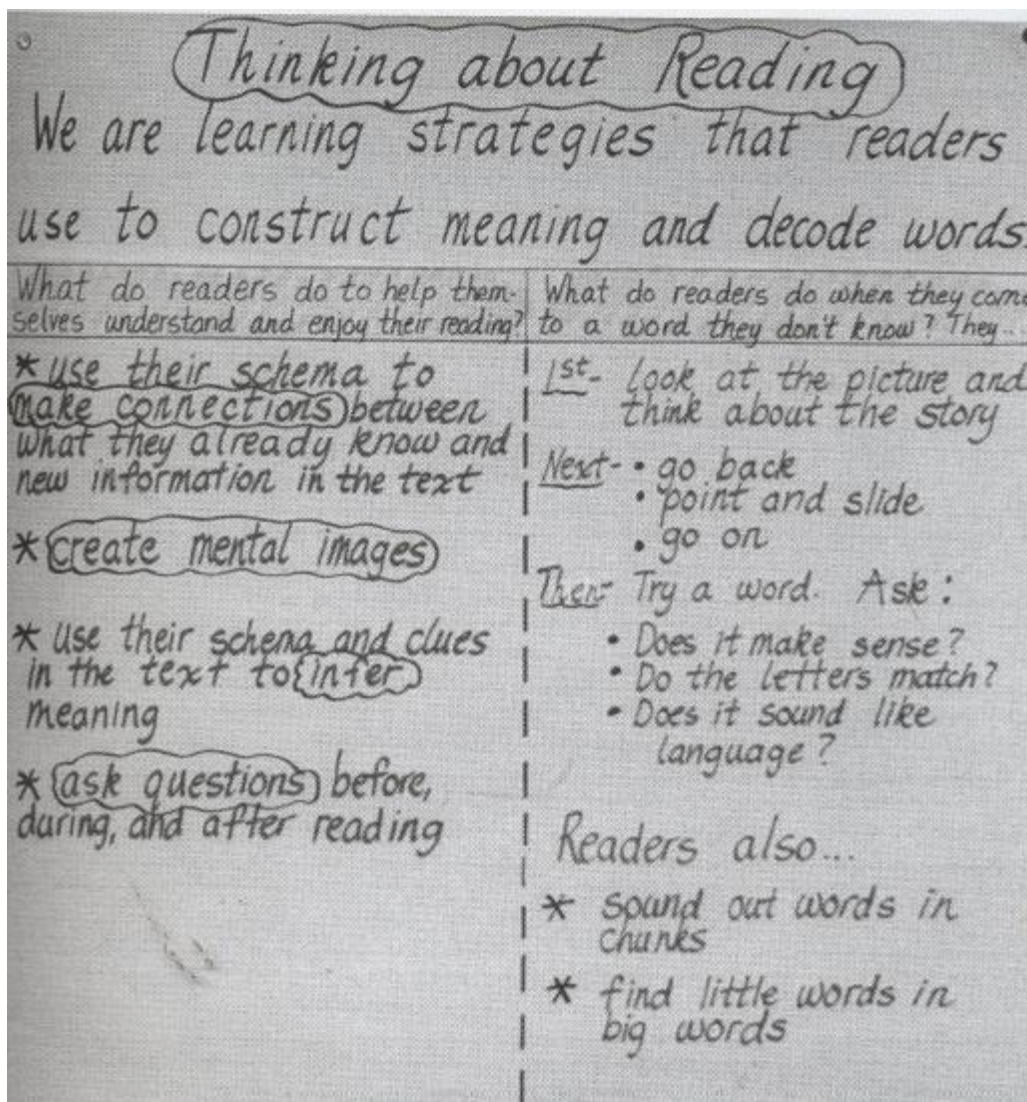 Thinking about Reading
We are learning strategies that readers
use to construct meaning and decode words.
What do readers do to help them-
selves understand and enjoy their reading?
* use their schema to
make connections between
what they already know and
new information in the text
* create mental images
* use their schema and clues
in the text to infer
meaning
* ask questions before,
during, and after reading
What do readers do when they come
to a word they don't know? They...
1st- look at the picture and
think about the story
Next- • go back
• point and slide
• go on
Then- Try a word. Ask:
• Does it make sense?
• Do the letters match?
• Does it sound like
language?
Readers also...
* sound out words in
chunks
* find little words in
big words